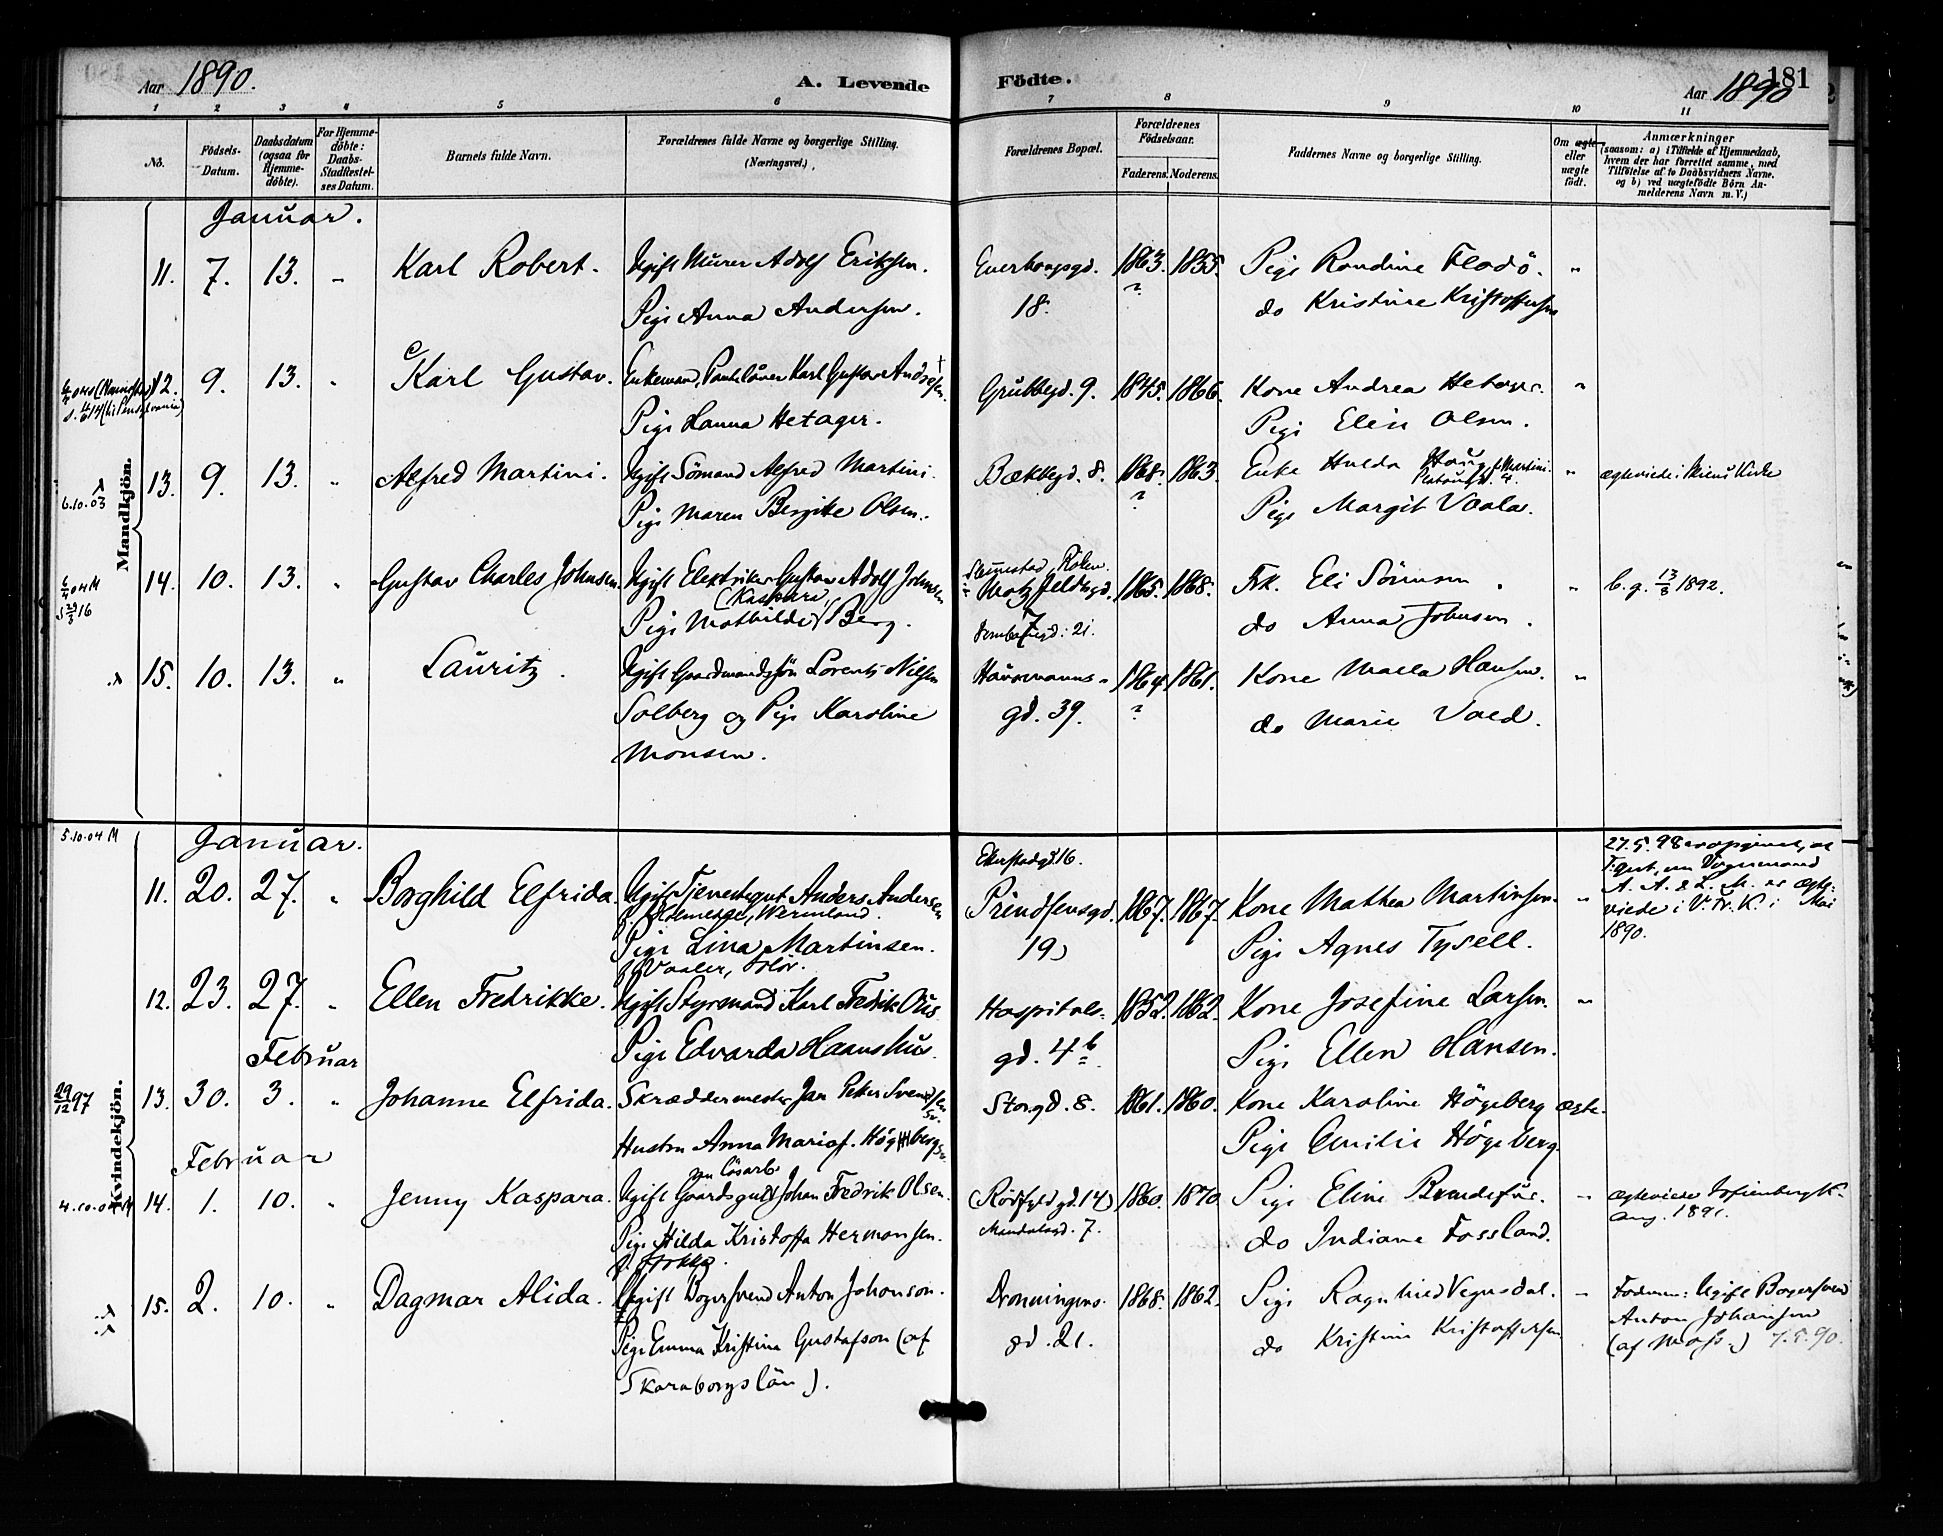 Aar 1890.
A. Levende
Födte.
Aar 1890
181
1 2 3 4 5 6 7 8 9 10 11
No.
Födsels-Datum.
Daabsdatum (ogsaa for Hjemme-döbte).
For Hjemme-döbte: Daabs-Stadfæstel-ses Datum.
Barnets fulde Navn.
Forældrenes fulde Navne og borgerlige Stilling. (Næringsvei.)
Forældrenes Bopæl.
Forældrenes Födselsaar.
Faderens. Moderens.
Faddernes Navne og borgerlige Stilling.
Om ægte eller uægte födt.
Anmærkninger
(saasom: a) i Tilfælde af Hjemmedaab,
hvem der har forrettet samme, med
Tilföielse af to Daabsvidners Navne.
og b) ved uægtefödte Börn An-
melderens Navn m. V.)
Mandkjön.
Januar.
11. 7. 13. " Karl Robert. Ugift Murer Adolf Eriksen. 1863. 1855. Pige Randine Flodö. "
Pige Anna Andersen. 18. ? do Kristine Kristoffersen
12. 9. 13. " Karl Gustav. Enkemand, Karl Gustav Andresen. Grubbegd. 9. 1845. 1866. Kone Andrea Hetager. "
Pige Hanna Hetager. Pige Elise Olsen.
6.10.03 13. 9. 13. " Alfred Martini. Ugift Sömand Alfred Martini. Bækkegd. 8. 1868. 1863. Enke Hulda Haug f. Martini. " ægteviede i Kirke
Pige Maren Bergitte Olsen. ? Pige Margit Vaaler.
14. 10. 13. " Gustav Charles Johnsen. Ugift Elektriker Gustav Adolf Johnsen 1865. 1868. Frk. Eli Sörensen. " b. g. 13/3 1892.
Pige Mathilde (Kaspara) Berg. 7 21. do Anna Johnsen.
15. 10. 13. " Lauritz. Ugift Gaardmandssön Lorents Nilsen Havremanns- 1864. 1861. Kone Hansen. "
Solberg og Pige Karoline gd. 39. ? do Marie Vold.
Monsen.
Kvindekjön.
5.10.04 M
Januar.
11. 20. 27. " Borghild Elfrida. Ugift Tjenestegut Anders Andersen Ekerstadgd. 16. 1867. 1867. Kone Mathea Martinsen. "
Wermland. (Prindsensgd. 19)
Pige Lina Martinsen. Pige Agnes Tysell.
f. Vaaler, Solör.
27.5.98 opgivet, at
T.gut, nu Vognmand
A. A. & L. M. er ægte-
viede i V. Fr. K. i Mai
1890.
12. 23. 27. " Ellen Fredrikke. Ugift Styrmand Karl Fredrik Ous Hospitals- 1852. 1862. Kone Josefine Larsen. "
Pige Edvarda Haanshus. gd. 4b. Pige Ellen Hansen.
Februar
29/12 97 13. 30. 3. " Johanne Elfrida. Skræddermester Jan Peter Svendsen Storgd. 8. 1861. 1860. Kone Karoline Högeberg ægte.
Hustru Anna Maria f. Högeberg Pige Emilie Högeberg.
Februar
14. 1. 10. " Jenny Kaspara. Ugift Gaardsgut Johan Fredrik Olsen. (Rödfyldgd. 14) 1860. 1870. Pige Eline Brandsfus. " ægteviede Sofienberg K.
nu lösarb. Mandalsgd. 7. Aug. 1891.
Pige Hilda Kristoffa Hermansen. do Indiane Fossland.
15. 2. 10. " Dagmar Alida. Ugift Bagersvend Anton Johanson. Dronningens- 1868. 1862. Pige Ragnhild Vegusdal. "
Pige Emma Kristina Gustafson (af gd. 21. do Kristine Kristoffersen
Skaraborgs län).
Faderen: Ugift Bagersvend
Anton Johansen
(af Moss.) 7.5.90.